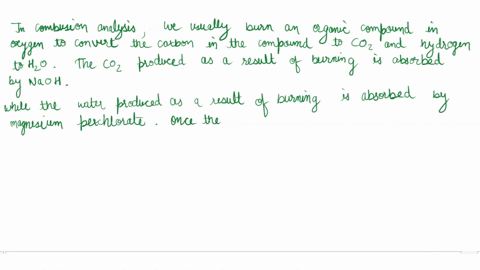 In combusion analysis, we usually burn an organic compound in
oxygen to convert the carbon in the compound to CO2 and hydrogen
to H2O. The CO2 produced as a result of burning is absorbed
by NaOH.
while the water produced as a result of burning is absorbed by
magnesium perchlorate. Once the